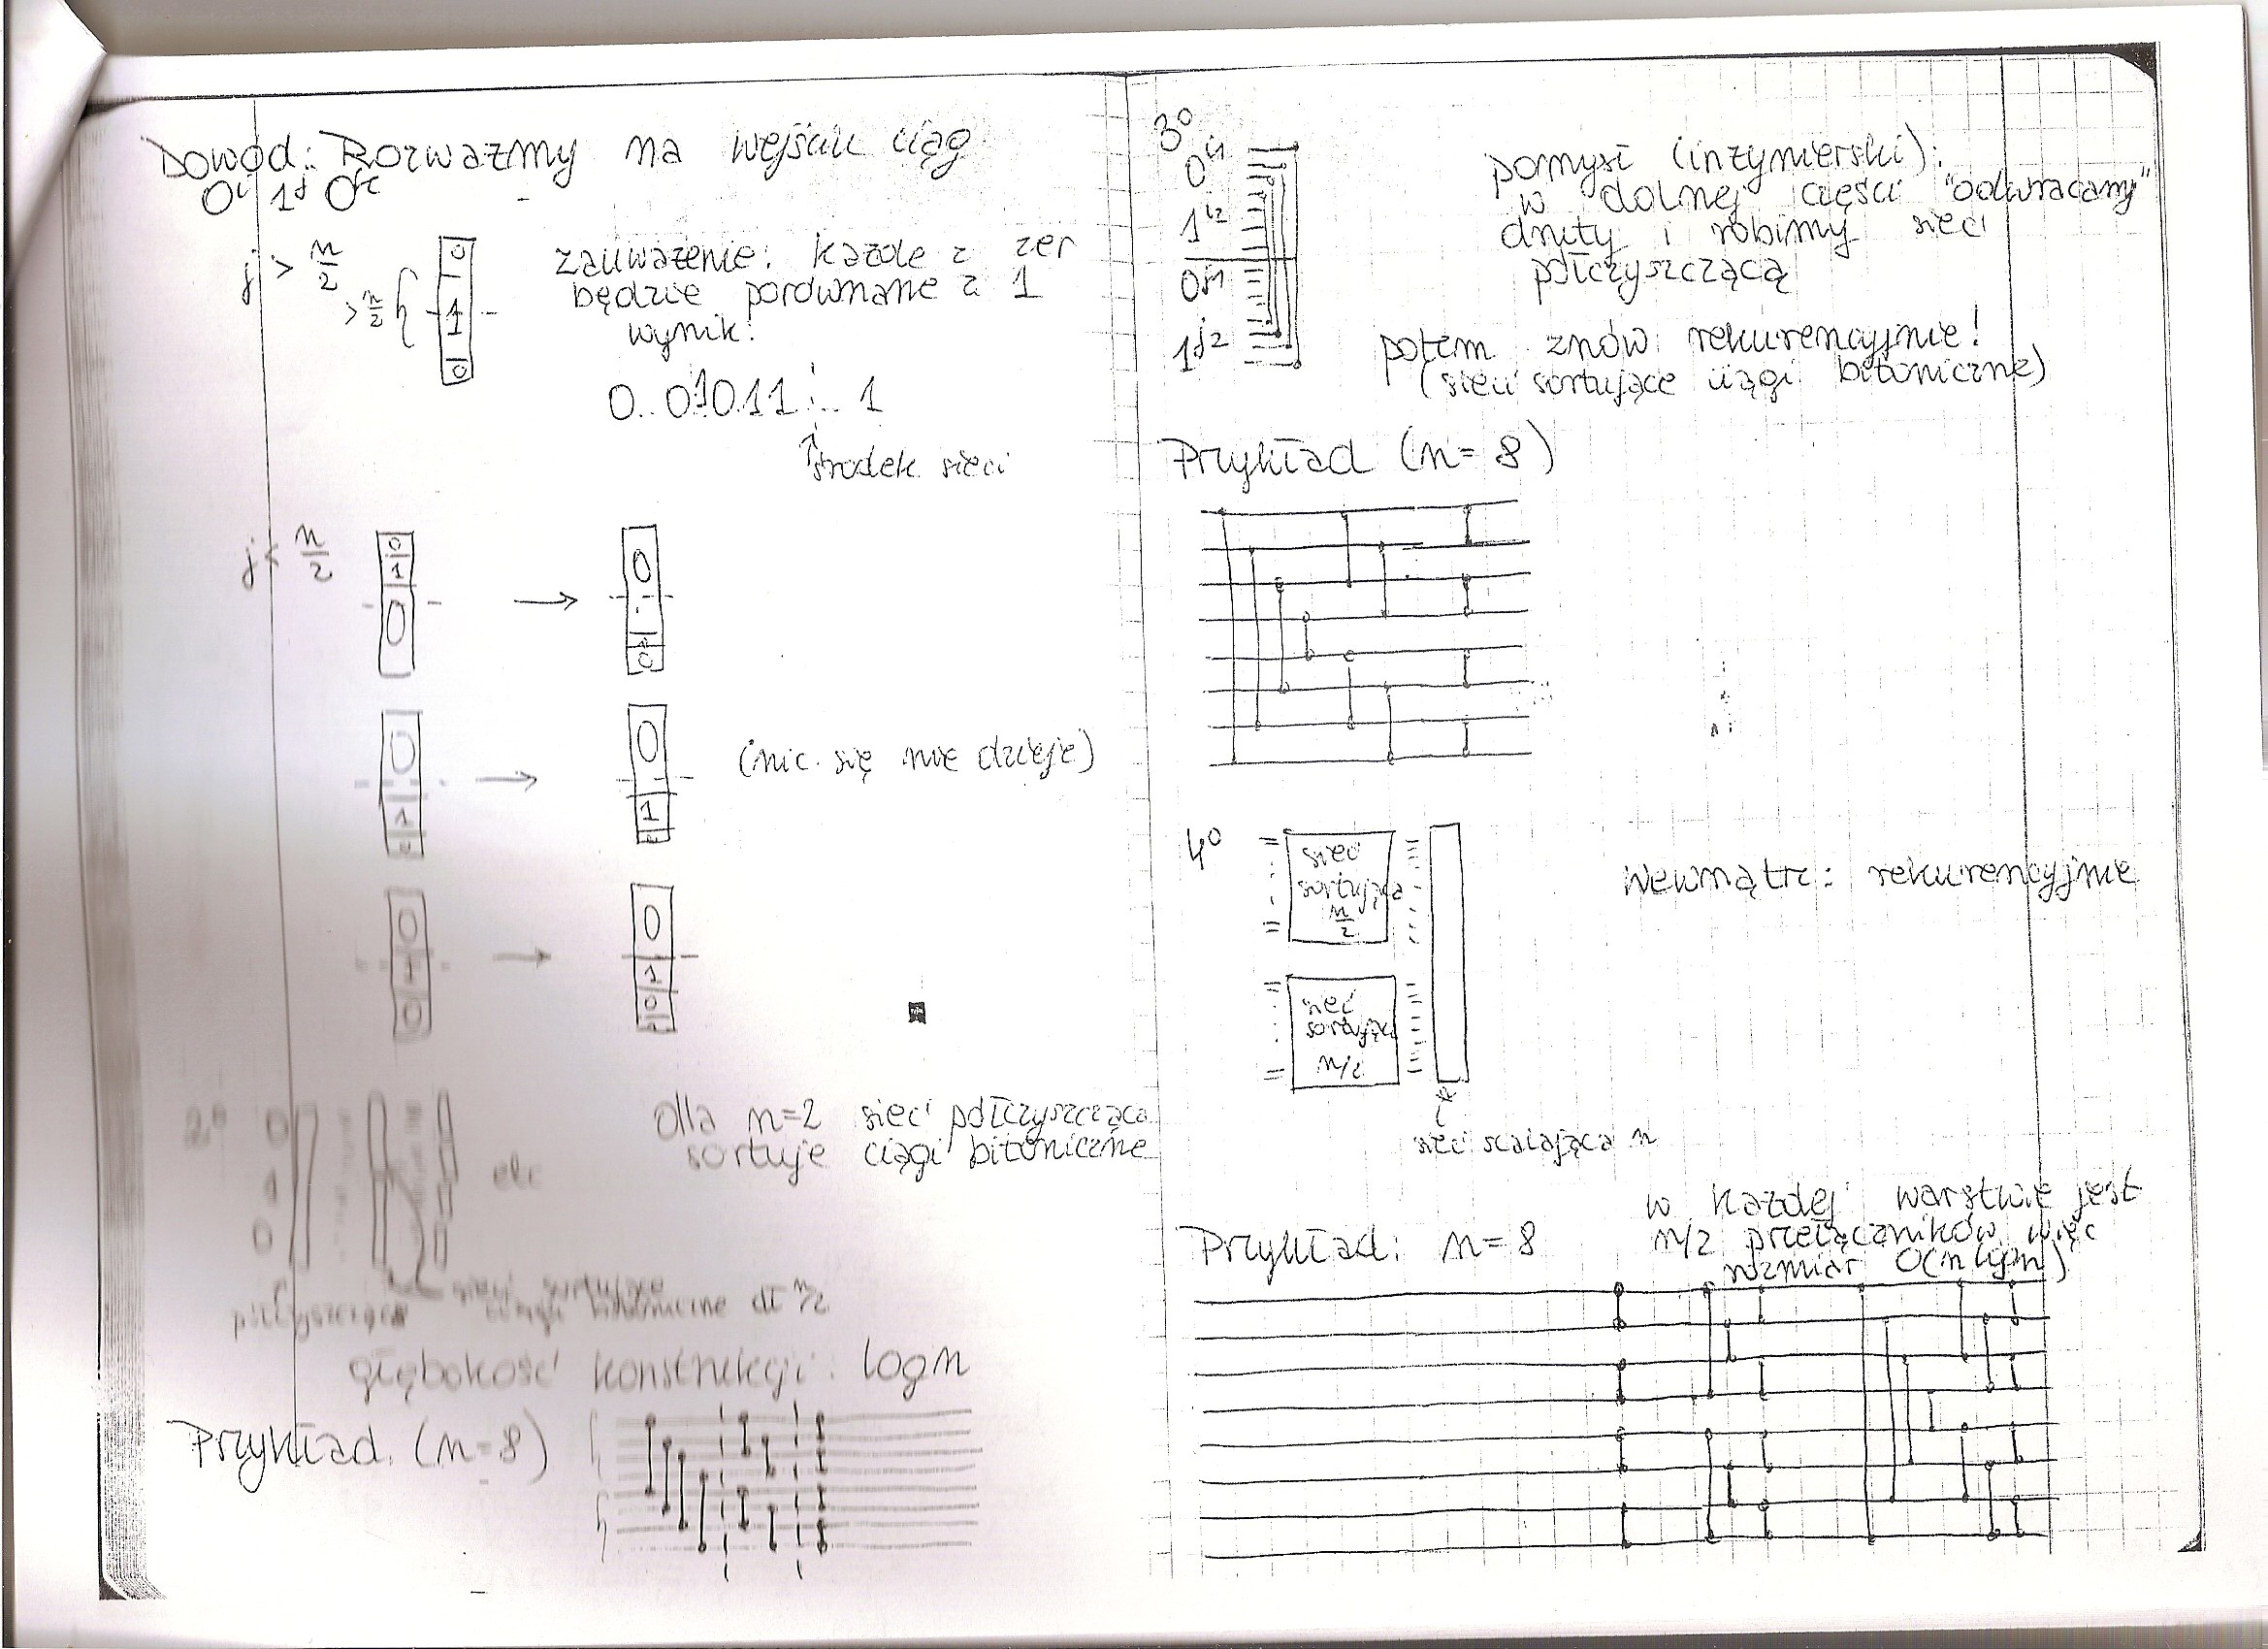 Dowód: Rozważmy na wejściu ciąg
0^i 1^j 0^k
j > n/2
> n/2
0
1
0
zauważenie: każde z zer
będzie porównane z 1
wynik:
0..01011... 1
środek sieci
j < n/2
0
1
0
0
0
0
1
0
1
(nic się nie dzieje)
0
1
0
0
1
0
2°
0
1
0
etc
dla n=2 sieć półczyszcząca
sortuje ciągi bitoniczne
półczyszcząca
sieci sortujące
ciągi bitoniczne dł n/2
głębokość konstrukcji: log n
Przykład. (n=8)
3°
0^i1
1^i2
0^j1
1^j2
pomysł (inżymierski):
w dolnej części "odwracamy"
druty i robimy sieć
półczyszczącą
potem znów rekurencyjnie!
(sieci sortujące ciągi bitoniczne)
Przykład (n=8)
4°
sieć
sortująca
n/2
sieć
sortująca
n/2
sieć scalająca n
Wewnątrz: rekurencyjnie
w każdej warstwie jest
n/2 przełączników, więc
rozmiar O(n lg n)
Przykład: n=8